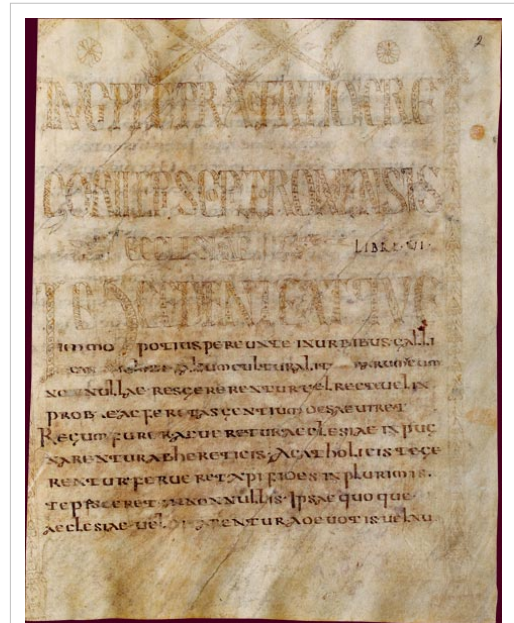 2
PRAEFATIO GRE
GORII
ECCLESIAE LIBRI · VI ·
immo potius pereunte in urbibus galli
cultura
nonnullae res gererentur uel recte uel in
probe ac feritas gentium desaeuiret
Regum furor acueretur aeclesiae inpug
narentur ab hereticis, a catholicis tege
rentur ferueret xpi fides in plurimis.
tepisceret in nonnullis. Ipsae quoque
aeclesiae uel ditarentur a deuotis uel nu